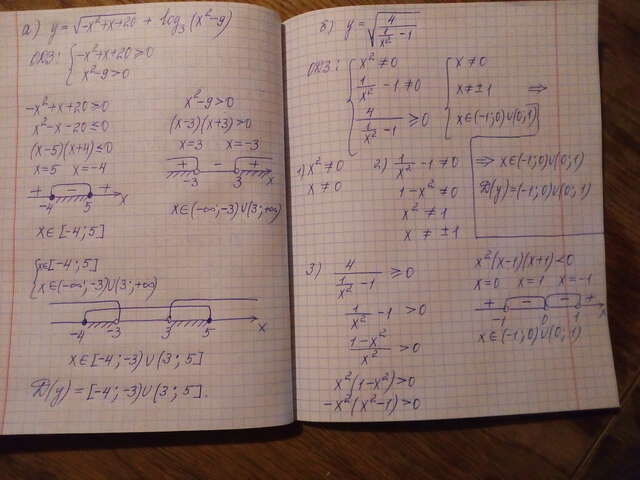 а) y = √(-x²+x+20) + log₃(x²-9)
ОДЗ: { -x²+x+20 ≥ 0
x²-9 > 0
-x²+x+20 ≥ 0
x²-x-20 ≤ 0
(x-5)(x+4) ≤ 0
x=5 x=-4
+ - +
-4 5 x
x∈[-4; 5]
x²-9 > 0
(x-3)(x+3) > 0
x=3 x=-3
+ - +
-3 3 x
x∈(-∞; -3)∪(3; +∞)
{ x∈[-4; 5]
x∈(-∞; -3)∪(3; +∞)
-4 -3 3 5 x
x∈[-4; -3)∪(3; 5]
D(y) = [-4; -3)∪(3; 5].
б) y = √(4/(1/x² - 1))
ОДЗ: { x² ≠ 0
1/x² - 1 ≠ 0
4/(1/x² - 1) ≥ 0
{ x ≠ 0
x ≠ ±1 ⇒
x∈(-1; 0)∪(0; 1)
⇒ x∈(-1; 0)∪(0; 1)
D(y) = (-1; 0)∪(0; 1)
1) x² ≠ 0
x ≠ 0
2) 1/x² - 1 ≠ 0
1-x² ≠ 0
x² ≠ 1
x ≠ ±1
3) 4/(1/x² - 1) ≥ 0
1/x² - 1 > 0
(1-x²)/x² > 0
x²(1-x²) > 0
-x²(x²-1) > 0
x²(x-1)(x+1) < 0
x=0 x=1 x=-1
+ - - +
-1 0 1 x
x∈(-1; 0)∪(0; 1)